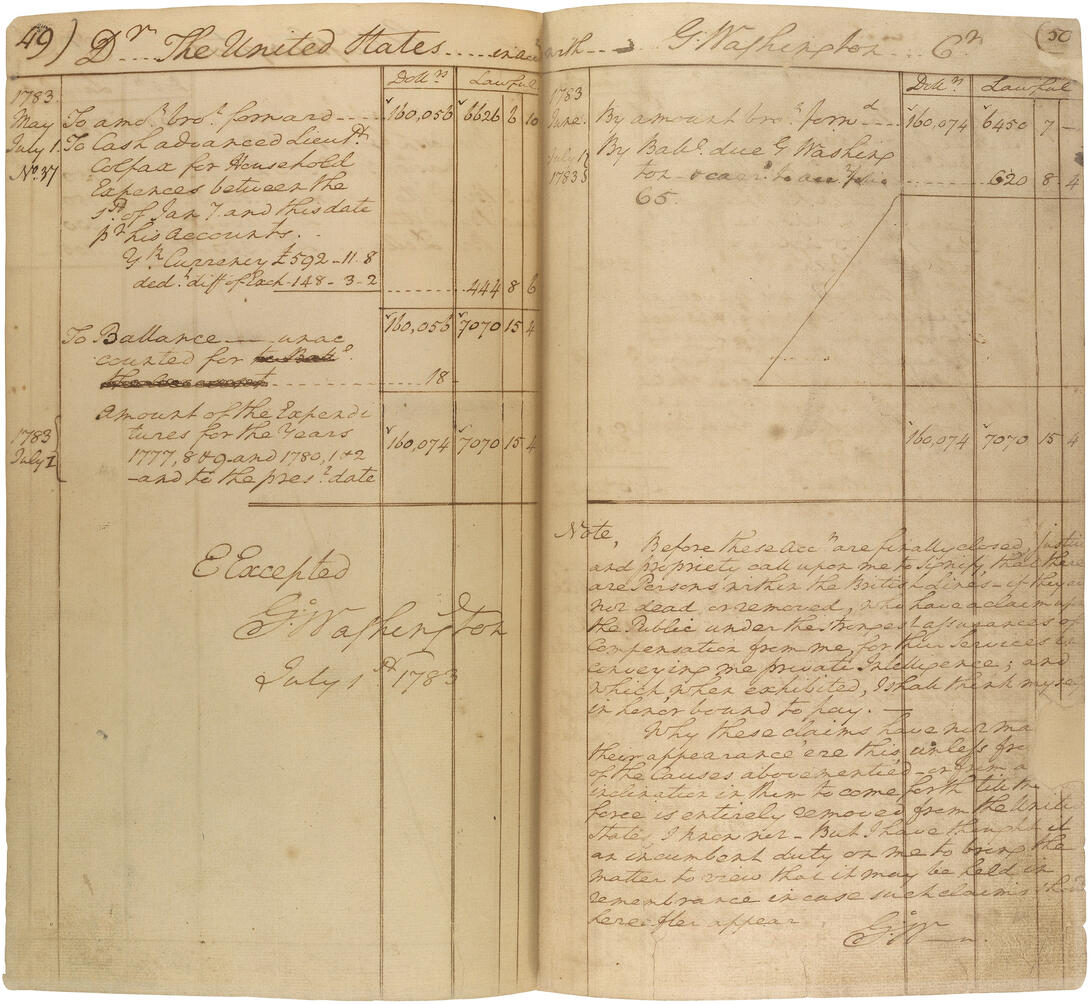 49) Dr. The United States .... in acct
1783.
Dollrs Lawful
May To amot brot forward ---- 160,056 6626 6 10
July 1. To Cash advanced Lieut
No. 37 Colfax for Household
Expences between the
1st of Jany and this date
pr his Accounts.
Yk Currency £592-11.8
dedt diff of Exch. 148-3-2 444 8 6
160,056 7070 15 4
To Ballance — unac
counted for
18-
Amount of the Expendi
1783 tures for the Years 160,074 7070 15 4
July 1 1777, 8 & 9 and 1780, 1 & 2
-and to the prest date
E Excepted
Go Washington
July 1st 1783
with G: Washington Cr (50
1783 Dollrs Lawful
June By amount brot forwd 160,074 6450 7 -
July 1 By Balle due G Washing
1783 ton 620 8 4
65.
160,074 7070 15 4
Note,
Before these Accts are finally closed, justi
and propriety call upon me to signify that there
are Persons within the British Lines - if they are
not dead, or removed, who have a claim upon
the Public under the strongest assurances of
compensation from me, for their Services in
conveying me private Intelligence; and
which, when exhibited, I shall think myself
in honor bound to pay. —
Why these claims have not ma
their appearance ere this, unless fro
of the causes abovementied - or from a
inclination in them to come forth till the
force is entirely removed from the Unite
States, I know not - But I have thought it
an incumbent duty on me to bring the
matter to view that it may be held in
remembrance in case such claims should
hereafter appear
G: W—n.